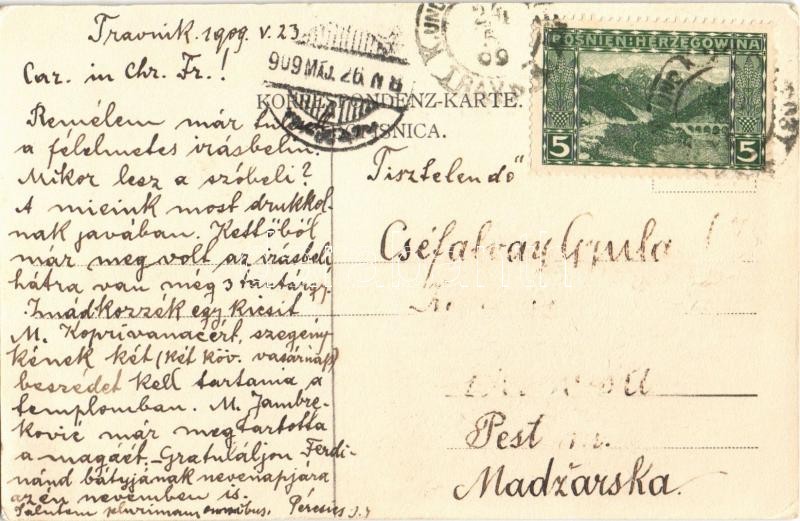 Travnik. 1909. V. 23
Car. in Chr. Fr.!
Remélem már túl
a félelmetes irásbelin.
Mikor lesz a szóbeli?
A mieink most drukkol-
nak javában. Kettőből
már meg volt az irásbeli
hátra van még 3 tantárgy.
Imádkozzék egy kicsit
M. Koprivanacért, szegény-
kének két (két köv. vasárnap)
beszédet kell tartania a
templomban. M. Jambre-
ković már megtartotta
a magáét. Gratuláljon Ferdi-
nánd bátyjának nevenapjára
az én nevemben is.
Salutem plurimam omnibus.
909 MÁJ. 26. N 8
KORRESPONDENZ-KARTE.
BOSNIEN-HERZEGOWINA
5 5
Tisztelendő
Cséfalvay Gyula
Pest
Madžarska.